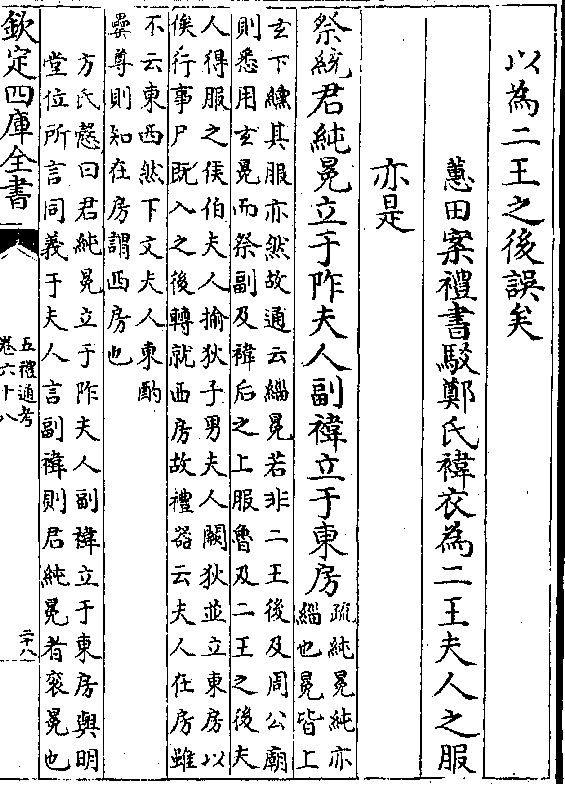 以為二王之後誤矣
蕙田案禮書駁鄭氏褘衣為二王夫人之服
亦是
祭統君純冕立于阼夫人副褘立于東房
疏純冕純亦
緇也冕皆上
玄下纁其服亦然故通云緇冕若非二王後及周公廟
則悉用玄冕而祭副及褘后之上服魯及二王之後夫
人得服之侯伯夫人揄狄子男夫人闕狄並立東房以
俟行事尸既入之後轉就西房故禮器云夫人在房雖
不云東西然下文夫人東酌
罍尊則知在房謂西房也
方氏慤曰君純冕立于阼夫人副褘立于東房與明
堂位所言同義于夫人言副褘則君純冕者衮冕也
欽定四庫全書
五禮通考
卷六十八
二十八